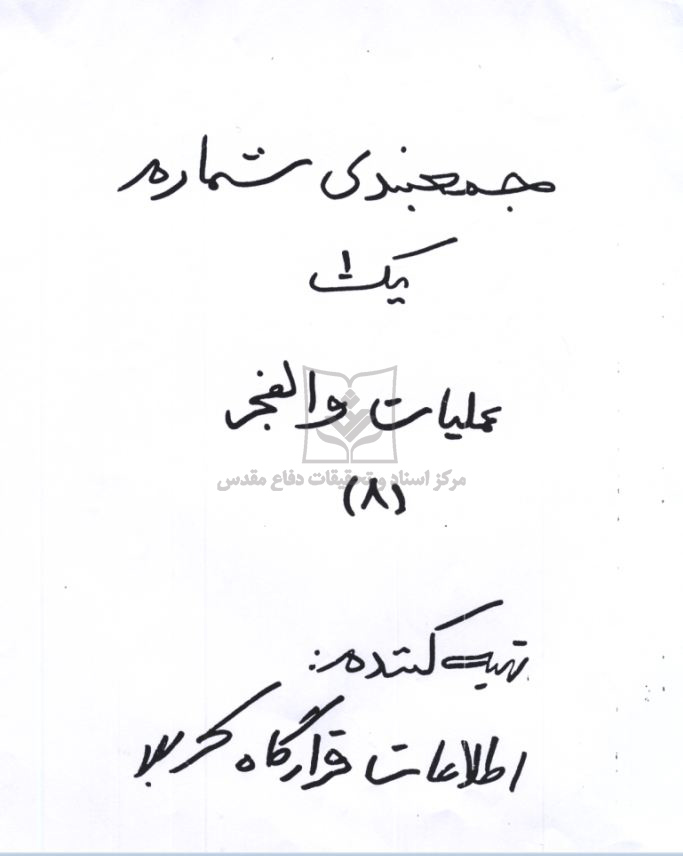 جمعبندی شماره
یک
عملیات والفجر
مرکز اسناد و تحقیقات دفاع مقدس
(۸)
تهیه کننده:
اطلاعات قرارگاه کربلا